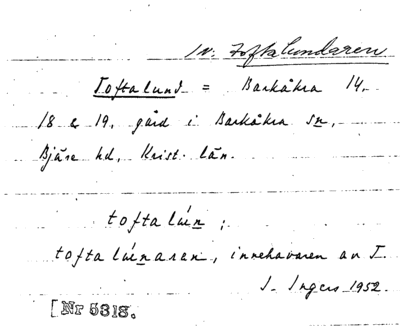 IV: Toftalundaren
Toftalund = Barkåkra 14,
18 & 19, gård i Barkåkra sn,
Bjäre hd, Krist. län.
toftalún;
toftalúnaran, innehavaren av T.
I. Ingers 1952.
[Nr 5318.